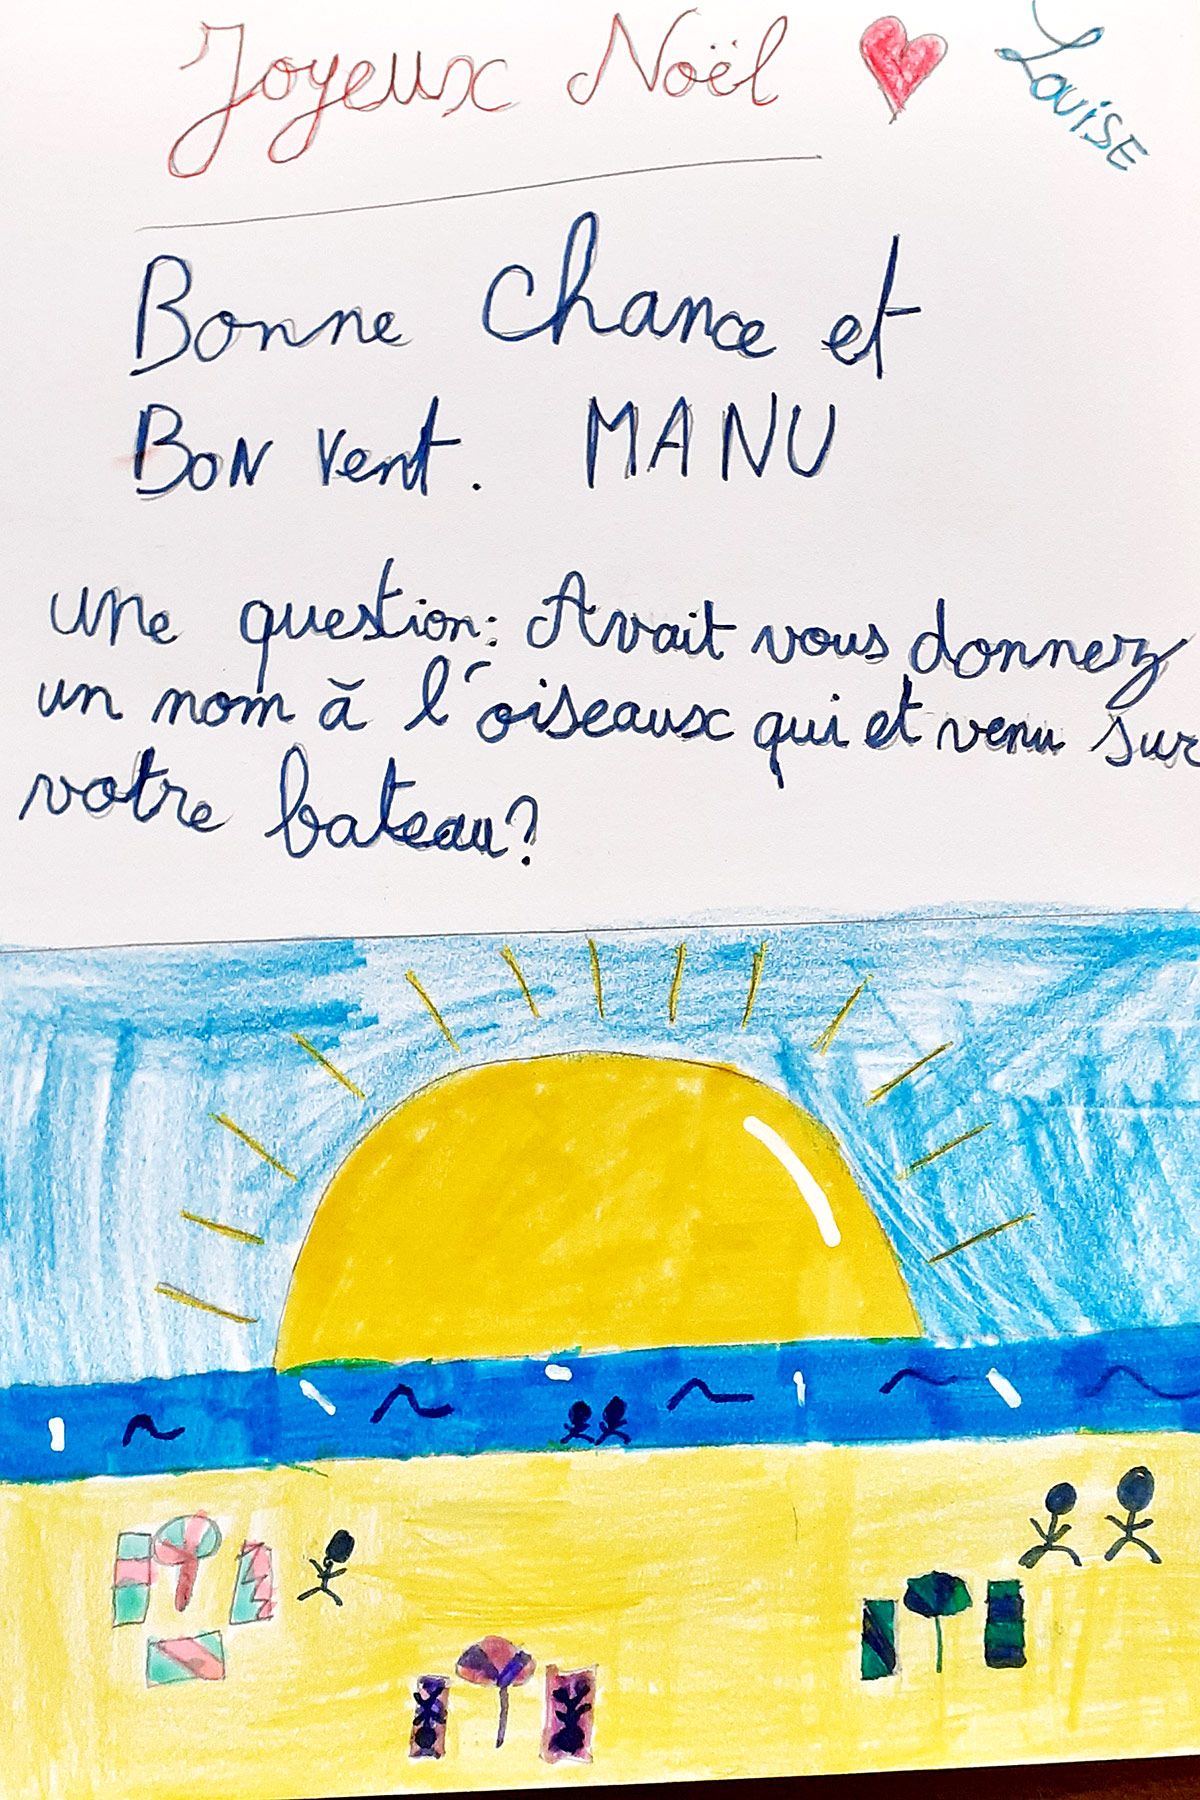 Joyeux Noël
Louise
Bonne Chance et
Bon vent. MANU
une question: Avait vous donnez
un nom à l'oiseaux qui et venu sur
votre bateau?